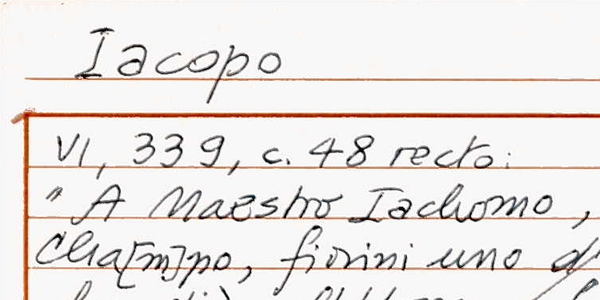 Iacopo
VI, 339, c. 48 recto:
" A Maestro Iachomo,
Cha[m]po, fiorini uno d'